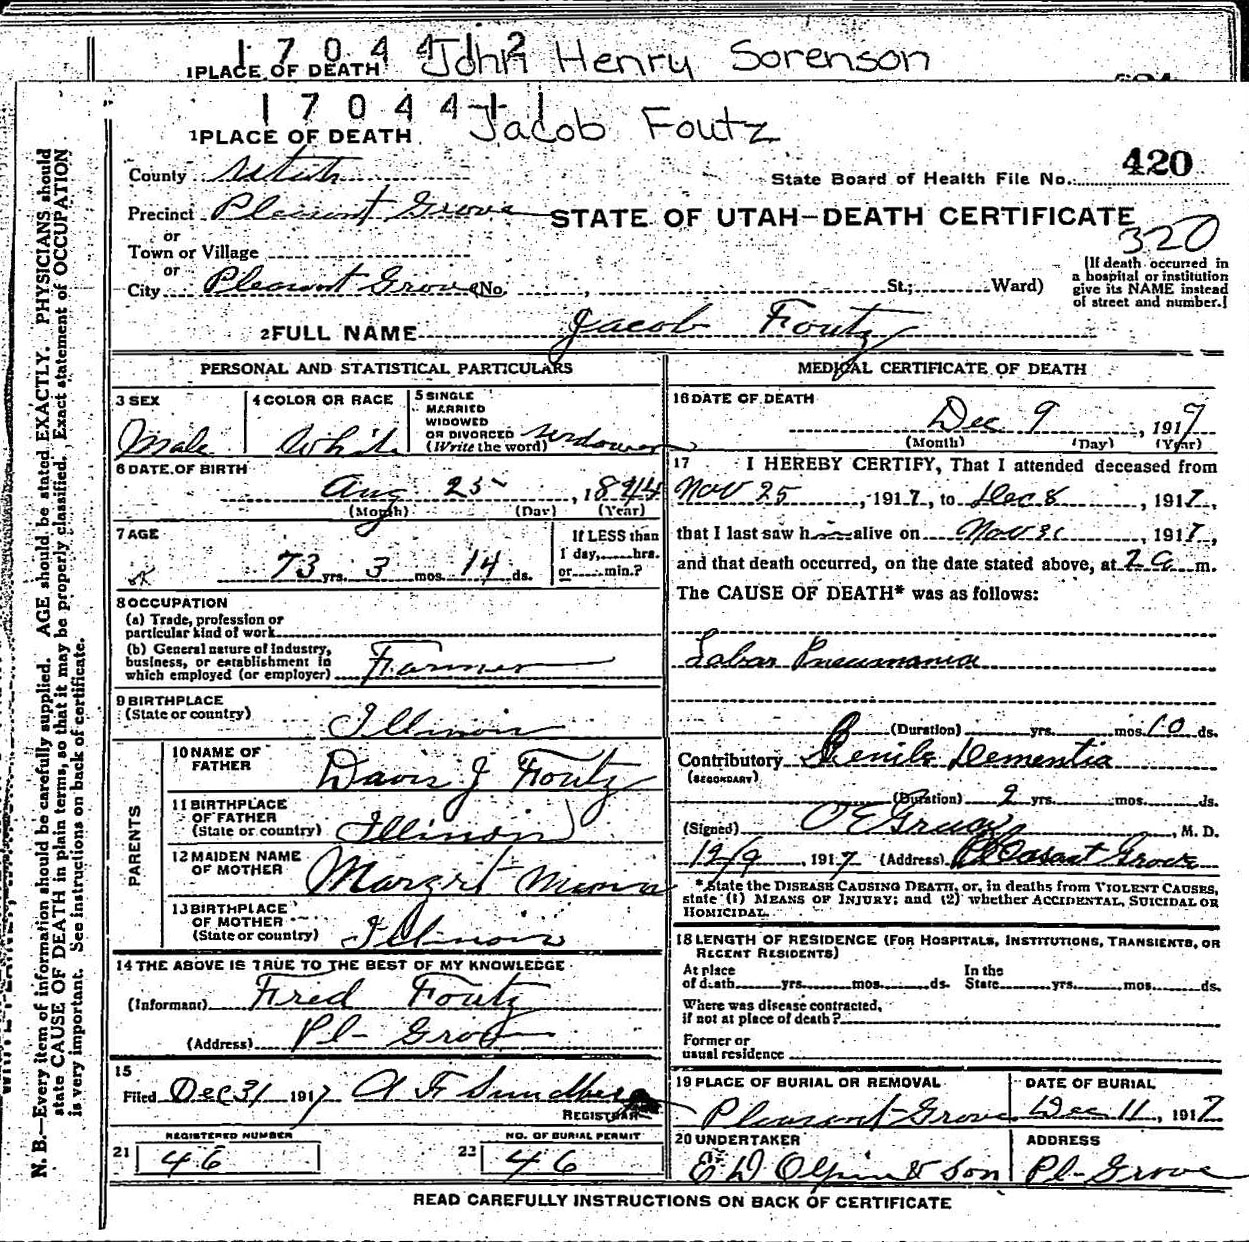 1 7 0 4 4 1 2 John Henry Sorenson
1 PLACE OF DEATH
1 7 0 4 4 1 1 Jacob Foutz
1 PLACE OF DEATH
County Utah
State Board of Health File No. 420
Precinct Pleasant Grove
STATE OF UTAH—DEATH CERTIFICATE
320
or
Town or Village
or
City Pleasant Grove (No. , St.; Ward)
[If death occurred in
a hospital or institution
give its NAME instead
of street and number.]
2 FULL NAME Jacob Foutz
PERSONAL AND STATISTICAL PARTICULARS
3 SEX
Male
4 COLOR OR RACE
White
5 SINGLE
MARRIED
WIDOWED
OR DIVORCED
(Write the word) Widower
6 DATE OF BIRTH
Aug 25, 1844
(Month) (Day) (Year)
7 AGE
73 yrs. 3 mos. 14 ds.
If LESS than
1 day, hrs.
or min.?
8 OCCUPATION
(a) Trade, profession or
particular kind of work
(b) General nature of Industry,
business, or establishment in
which employed (or employer) Farmer
9 BIRTHPLACE
(State or country)
Illinois
PARENTS
10 NAME OF
FATHER
Davis J Foutz
11 BIRTHPLACE
OF FATHER
(State or country) Illinois
12 MAIDEN NAME
OF MOTHER
Margret
13 BIRTHPLACE
OF MOTHER
(State or country) Illinois
14 THE ABOVE IS TRUE TO THE BEST OF MY KNOWLEDGE
(Informant) Fred Foutz
(Address) Pl- Grove
15
Filed Dec 31 1917 A F Sundberg
REGISTRAR
REGISTERED NUMBER
21 46
NO. OF BURIAL PERMIT
22 46
MEDICAL CERTIFICATE OF DEATH
16 DATE OF DEATH
Dec 9, 1917
(Month) (Day) (Year)
17 I HEREBY CERTIFY, That I attended deceased from
Nov 25, 1917, to Dec 8, 1917,
that I last saw h alive on Nov 30, 1917,
and that death occurred, on the date stated above, at 2 a m.
The CAUSE OF DEATH* was as follows:
Lobar Pneumonia
(Duration) yrs. mos. 10 ds.
Contributory Senile Dementia
(SECONDARY)
(Duration) 2 yrs. mos. ds.
(Signed) O E Grua, M. D.
12/9, 1917 (Address) Pleasant Grove
*State the DISEASE CAUSING DEATH, or, in deaths from VIOLENT CAUSES,
state (1) MEANS OF INJURY; and (2) whether ACCIDENTAL, SUICIDAL OR
HOMICIDAL.
18 LENGTH OF RESIDENCE (FOR HOSPITALS, INSTITUTIONS, TRANSIENTS, OR
RECENT RESIDENTS)
At place
of death yrs. mos. ds.
In the
State yrs. mos. ds.
Where was disease contracted,
if not at place of death?
Former or
usual residence
19 PLACE OF BURIAL OR REMOVAL
Pleasant Grove
DATE OF BURIAL
Dec 11, 1917
20 UNDERTAKER
E D Olpin & Son
ADDRESS
Pl- Grove
READ CAREFULLY INSTRUCTIONS ON BACK OF CERTIFICATE
N. B.—Every item of information should be carefully supplied. AGE should be stated EXACTLY. PHYSICIANS should
state CAUSE OF DEATH in plain terms, so that it may be properly classified. Exact statement of OCCUPATION
is very important. See instructions on back of certificate.